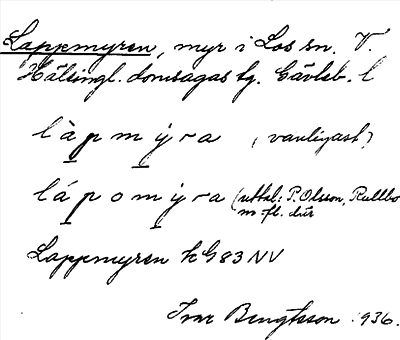 Lappemyren, myr i Los sn. V.
Hälsingl. domsagas tg. Gävleb. l
làpmýra (vanligast)
lápomýra (uttal: P. Olsson, Rullbo
m. fl. där
Lappmyren k G83 NV
Ivar Bengtsson 1936.